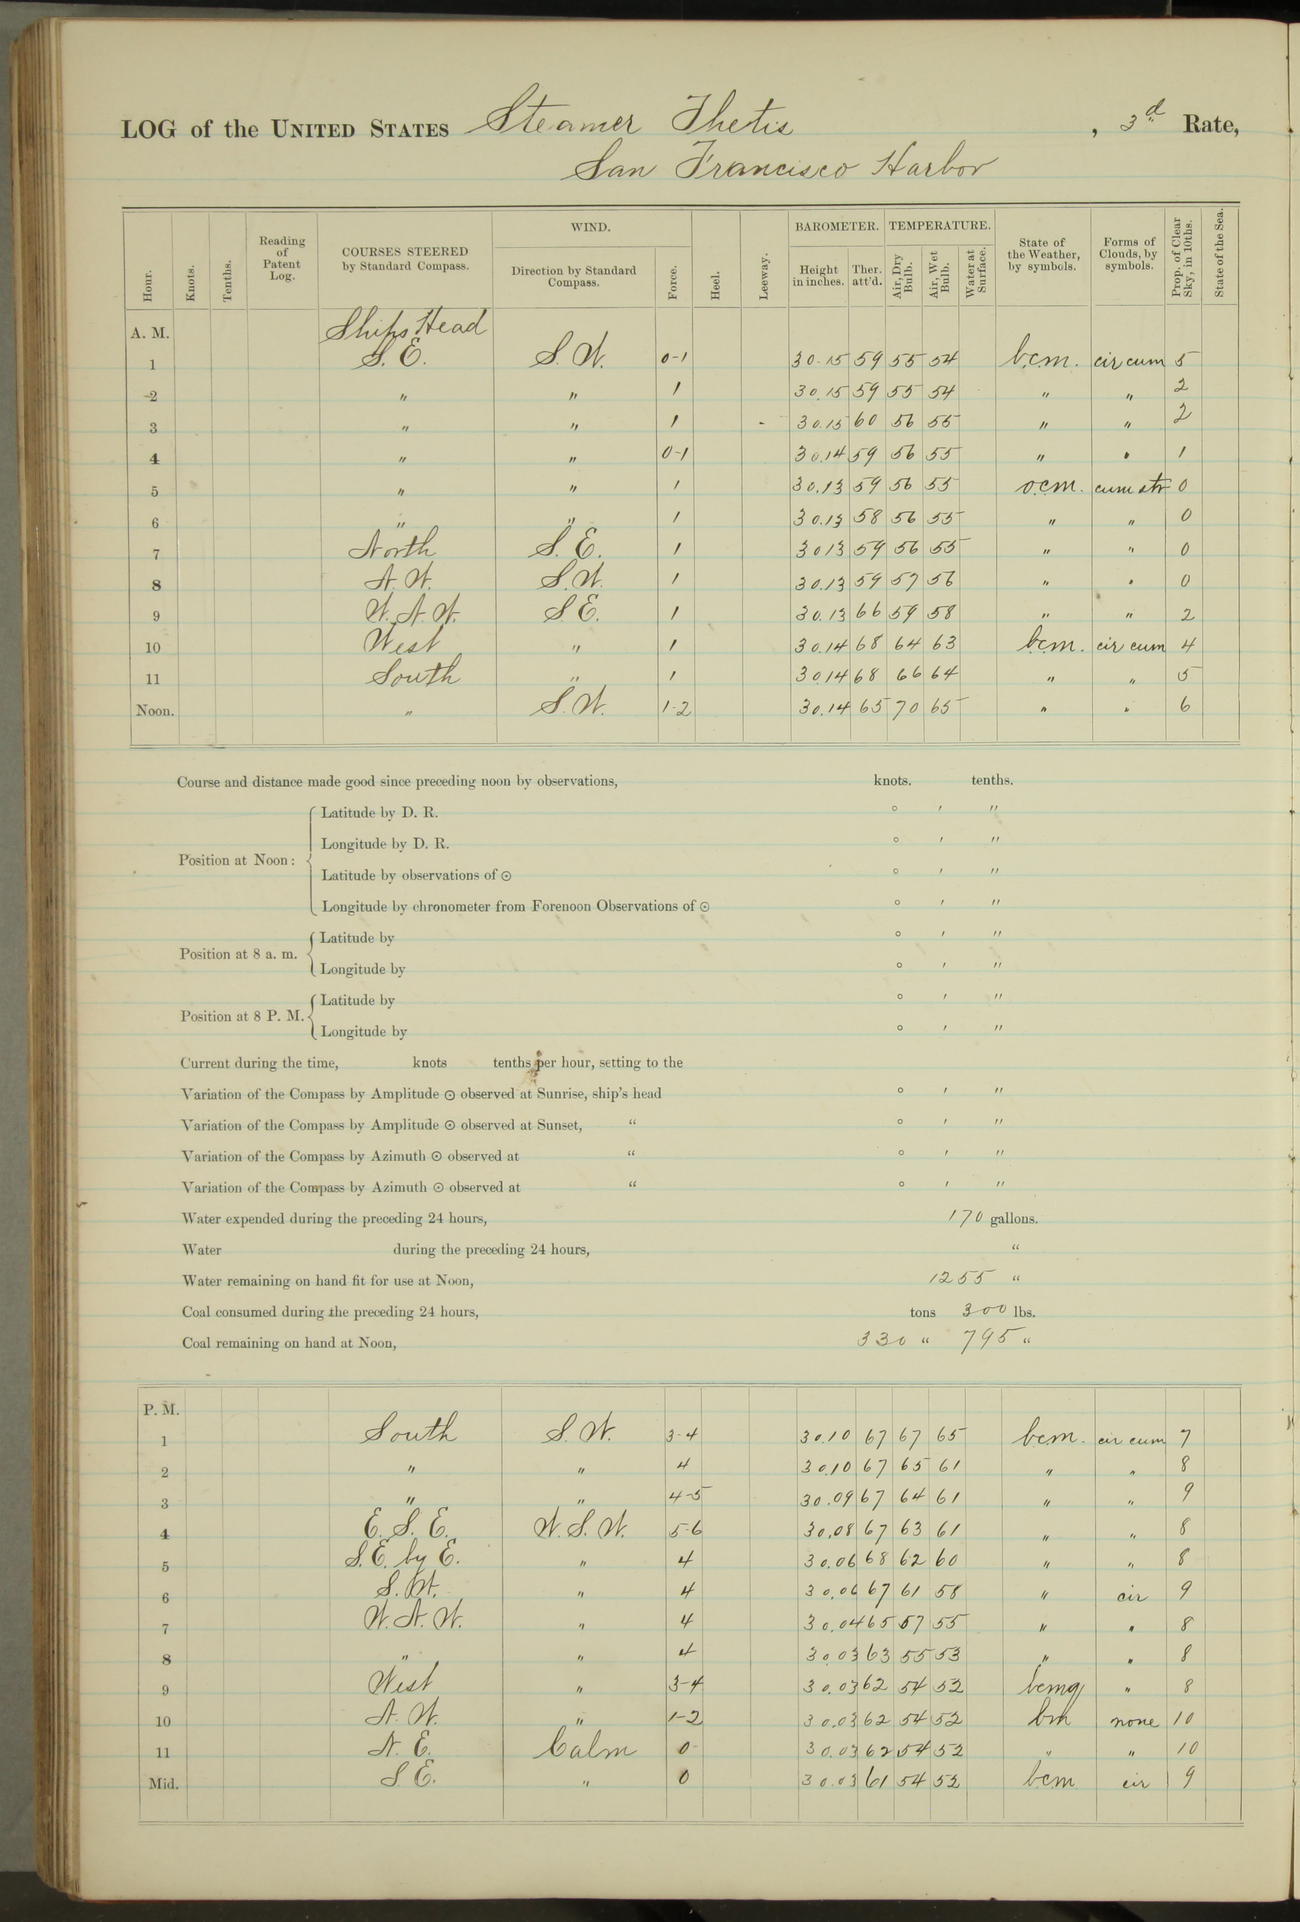 LOG of the UNITED STATES Steamer Thetis, 3d Rate,
San Francisco Harbor
Hour. Knots. Tenths. Reading of Patent Log. COURSES STEERED by Standard Compass. WIND. Direction by Standard Compass. Force. Heel. Leeway. BAROMETER. Height in inches. Ther. att'd. TEMPERATURE. Air, Dry Bulb. Air, Wet Bulb. Water at Surface. State of the Weather, by symbols. Forms of Clouds, by symbols. Prop. of Clear Sky, in 10ths. State of the Sea.
A. M. Ships Head
1 S. E. S. W. 0-1 30.15 59 55 54 b.c.m. cir cum 5
2 " " 1 30.15 59 55 54 " " 2
3 " " 1 30.15 60 56 55 " " 2
4 " " 0-1 30.14 59 56 55 " " 1
5 " " 1 30.13 59 56 55 o.c.m. cum str 0
6 " " 1 30.13 58 56 55 " " 0
7 North S. E. 1 30.13 59 56 55 " " 0
8 N. W. S. W. 1 30.13 59 57 56 " " 0
9 W. N. W. S E. 1 30.13 66 59 58 " " 2
10 West " 1 30.14 68 64 63 b.c.m. cir cum 4
11 South " 1 30.14 68 66 64 " " 5
Noon. " S. W. 1-2 30.14 65 70 65 " " 6
Course and distance made good since preceding noon by observations, knots. tenths.
Position at Noon:
Latitude by D. R. ° ' "
Longitude by D. R. ° ' "
Latitude by observations of ⊙ ° ' "
Longitude by chronometer from Forenoon Observations of ⊙ ° ' "
Position at 8 a. m.
Latitude by ° ' "
Longitude by ° ' "
Position at 8 P. M.
Latitude by ° ' "
Longitude by ° ' "
Current during the time, knots tenths per hour, setting to the
Variation of the Compass by Amplitude ⊙ observed at Sunrise, ship's head ° ' "
Variation of the Compass by Amplitude ⊙ observed at Sunset, " ° ' "
Variation of the Compass by Azimuth ⊙ observed at " ° ' "
Variation of the Compass by Azimuth ⊙ observed at " ° ' "
Water expended during the preceding 24 hours, 170 gallons.
Water during the preceding 24 hours, "
Water remaining on hand fit for use at Noon, 1255 "
Coal consumed during the preceding 24 hours, tons 300 lbs.
Coal remaining on hand at Noon, 330 " 795 "
P. M.
1 South S. W. 3-4 30.10 67 67 65 bcm. cir cum 7
2 " " 4 30.10 67 65 61 " " 8
3 " " 4-5 30.09 67 64 61 " " 9
4 E. S. E. W. S. W. 5-6 30.08 67 63 61 " " 8
5 S. E. by E. " 4 30.06 68 62 60 " " 8
6 S. W. " 4 30.06 67 61 58 " cir 9
7 W. N. W. " 4 30.04 65 57 55 " " 8
8 " " 4 30.03 63 55 53 " " 8
9 West " 3-4 30.03 62 54 52 bcmq " 8
10 N. W. " 1-2 30.03 62 54 52 bm none 10
11 N. E. Calm 0 30.03 62 54 52 " " 10
Mid. S E. " 0 30.03 61 54 52 bcm cir 9